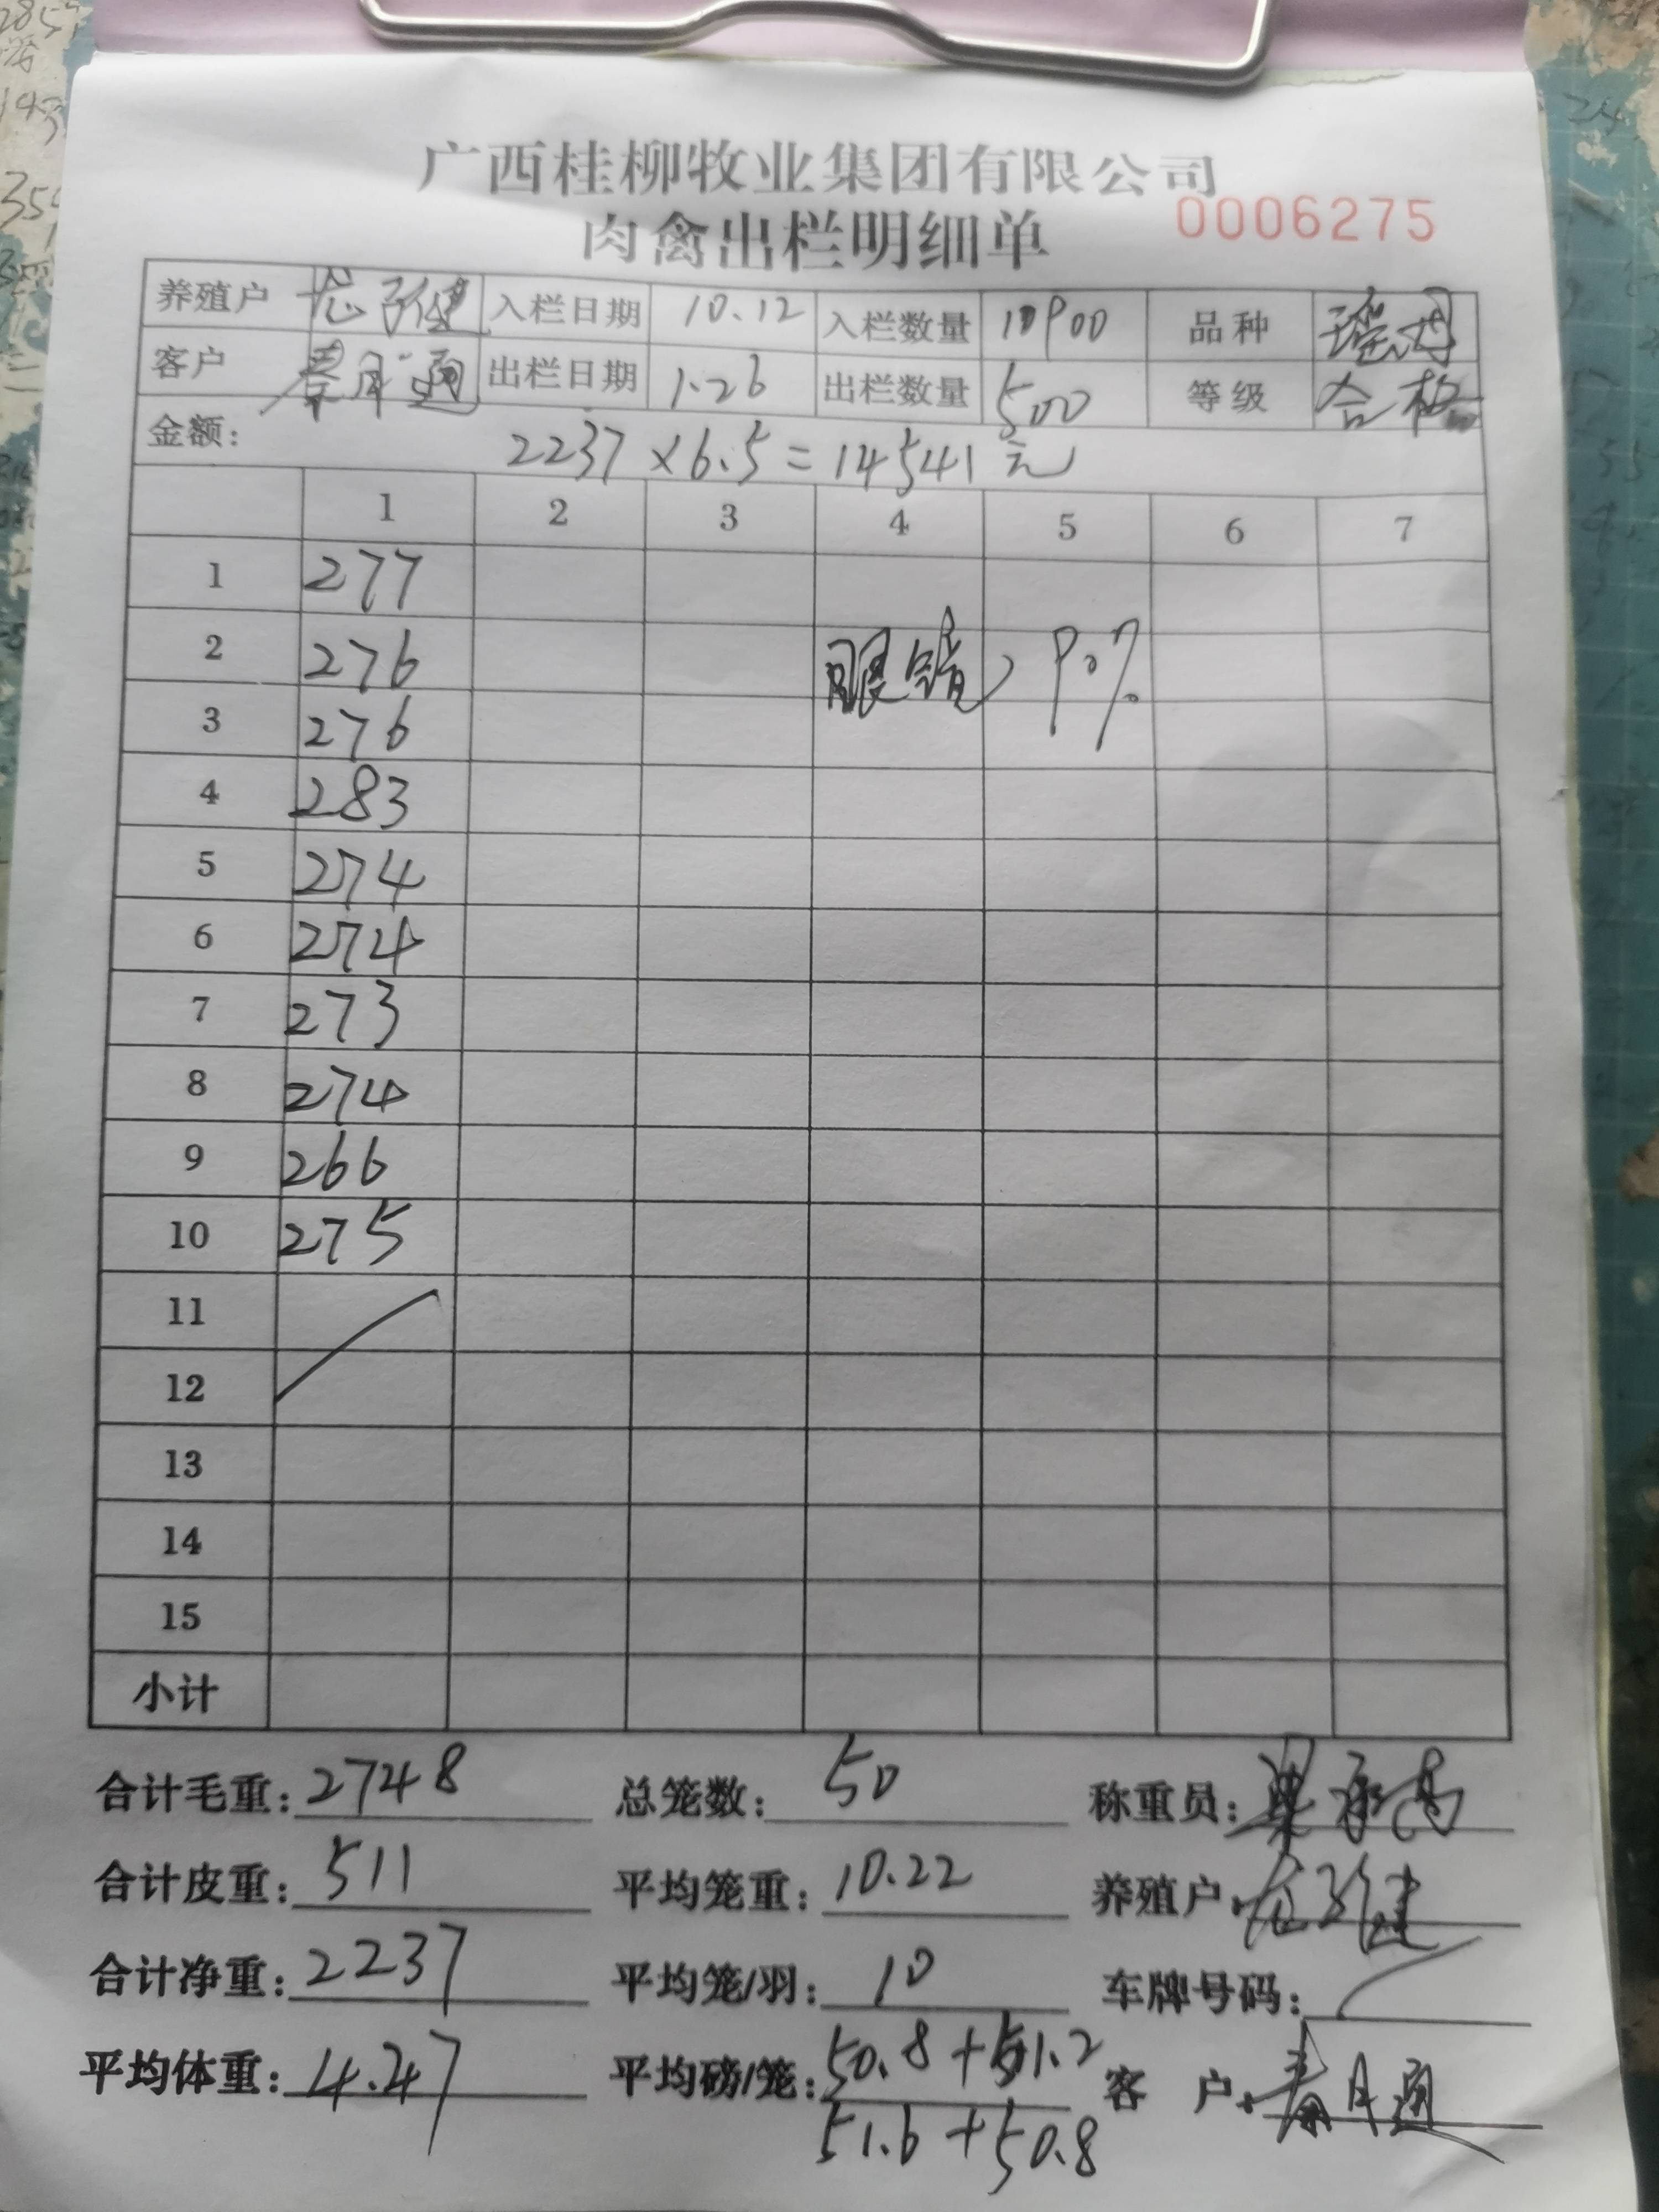 广西桂柳牧业集团有限公司
肉禽出栏明细单 0006275
养殖户 入栏日期 10.12 入栏数量 10900 品种 瑶鸡
客户 出栏日期 1.26 出栏数量 500 等级 合格
金额: 2237×6.5=14541元
1 2 3 4 5 6 7
1 277
2 276 眼镜, 90%
3 276
4 283
5 274
6 274
7 273
8 274
9 266
10 275
11
12
13
14
15
小计
合计毛重: 2748 总笼数: 50 称重员:
合计皮重: 511 平均笼重: 10.22 养殖户:
合计净重: 2237 平均笼/羽: 10 车牌号码:
平均体重: 4.47 平均磅/笼: 50.8+51.2 客户:
51.6+50.8